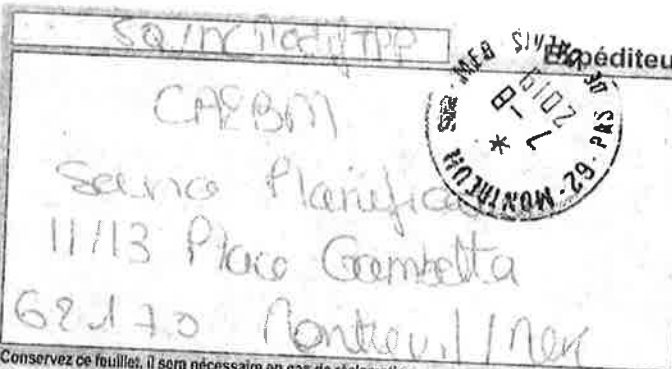 Expéditeur
CA2BM
Service Planification
11/13 Place Gambetta
62170 Montreuil / Mer
62 - PAS DE CALAIS
MONTREUIL SUR MER
7 - 8
2019
*
Conservez ce feuillet, il sera nécessaire en cas de